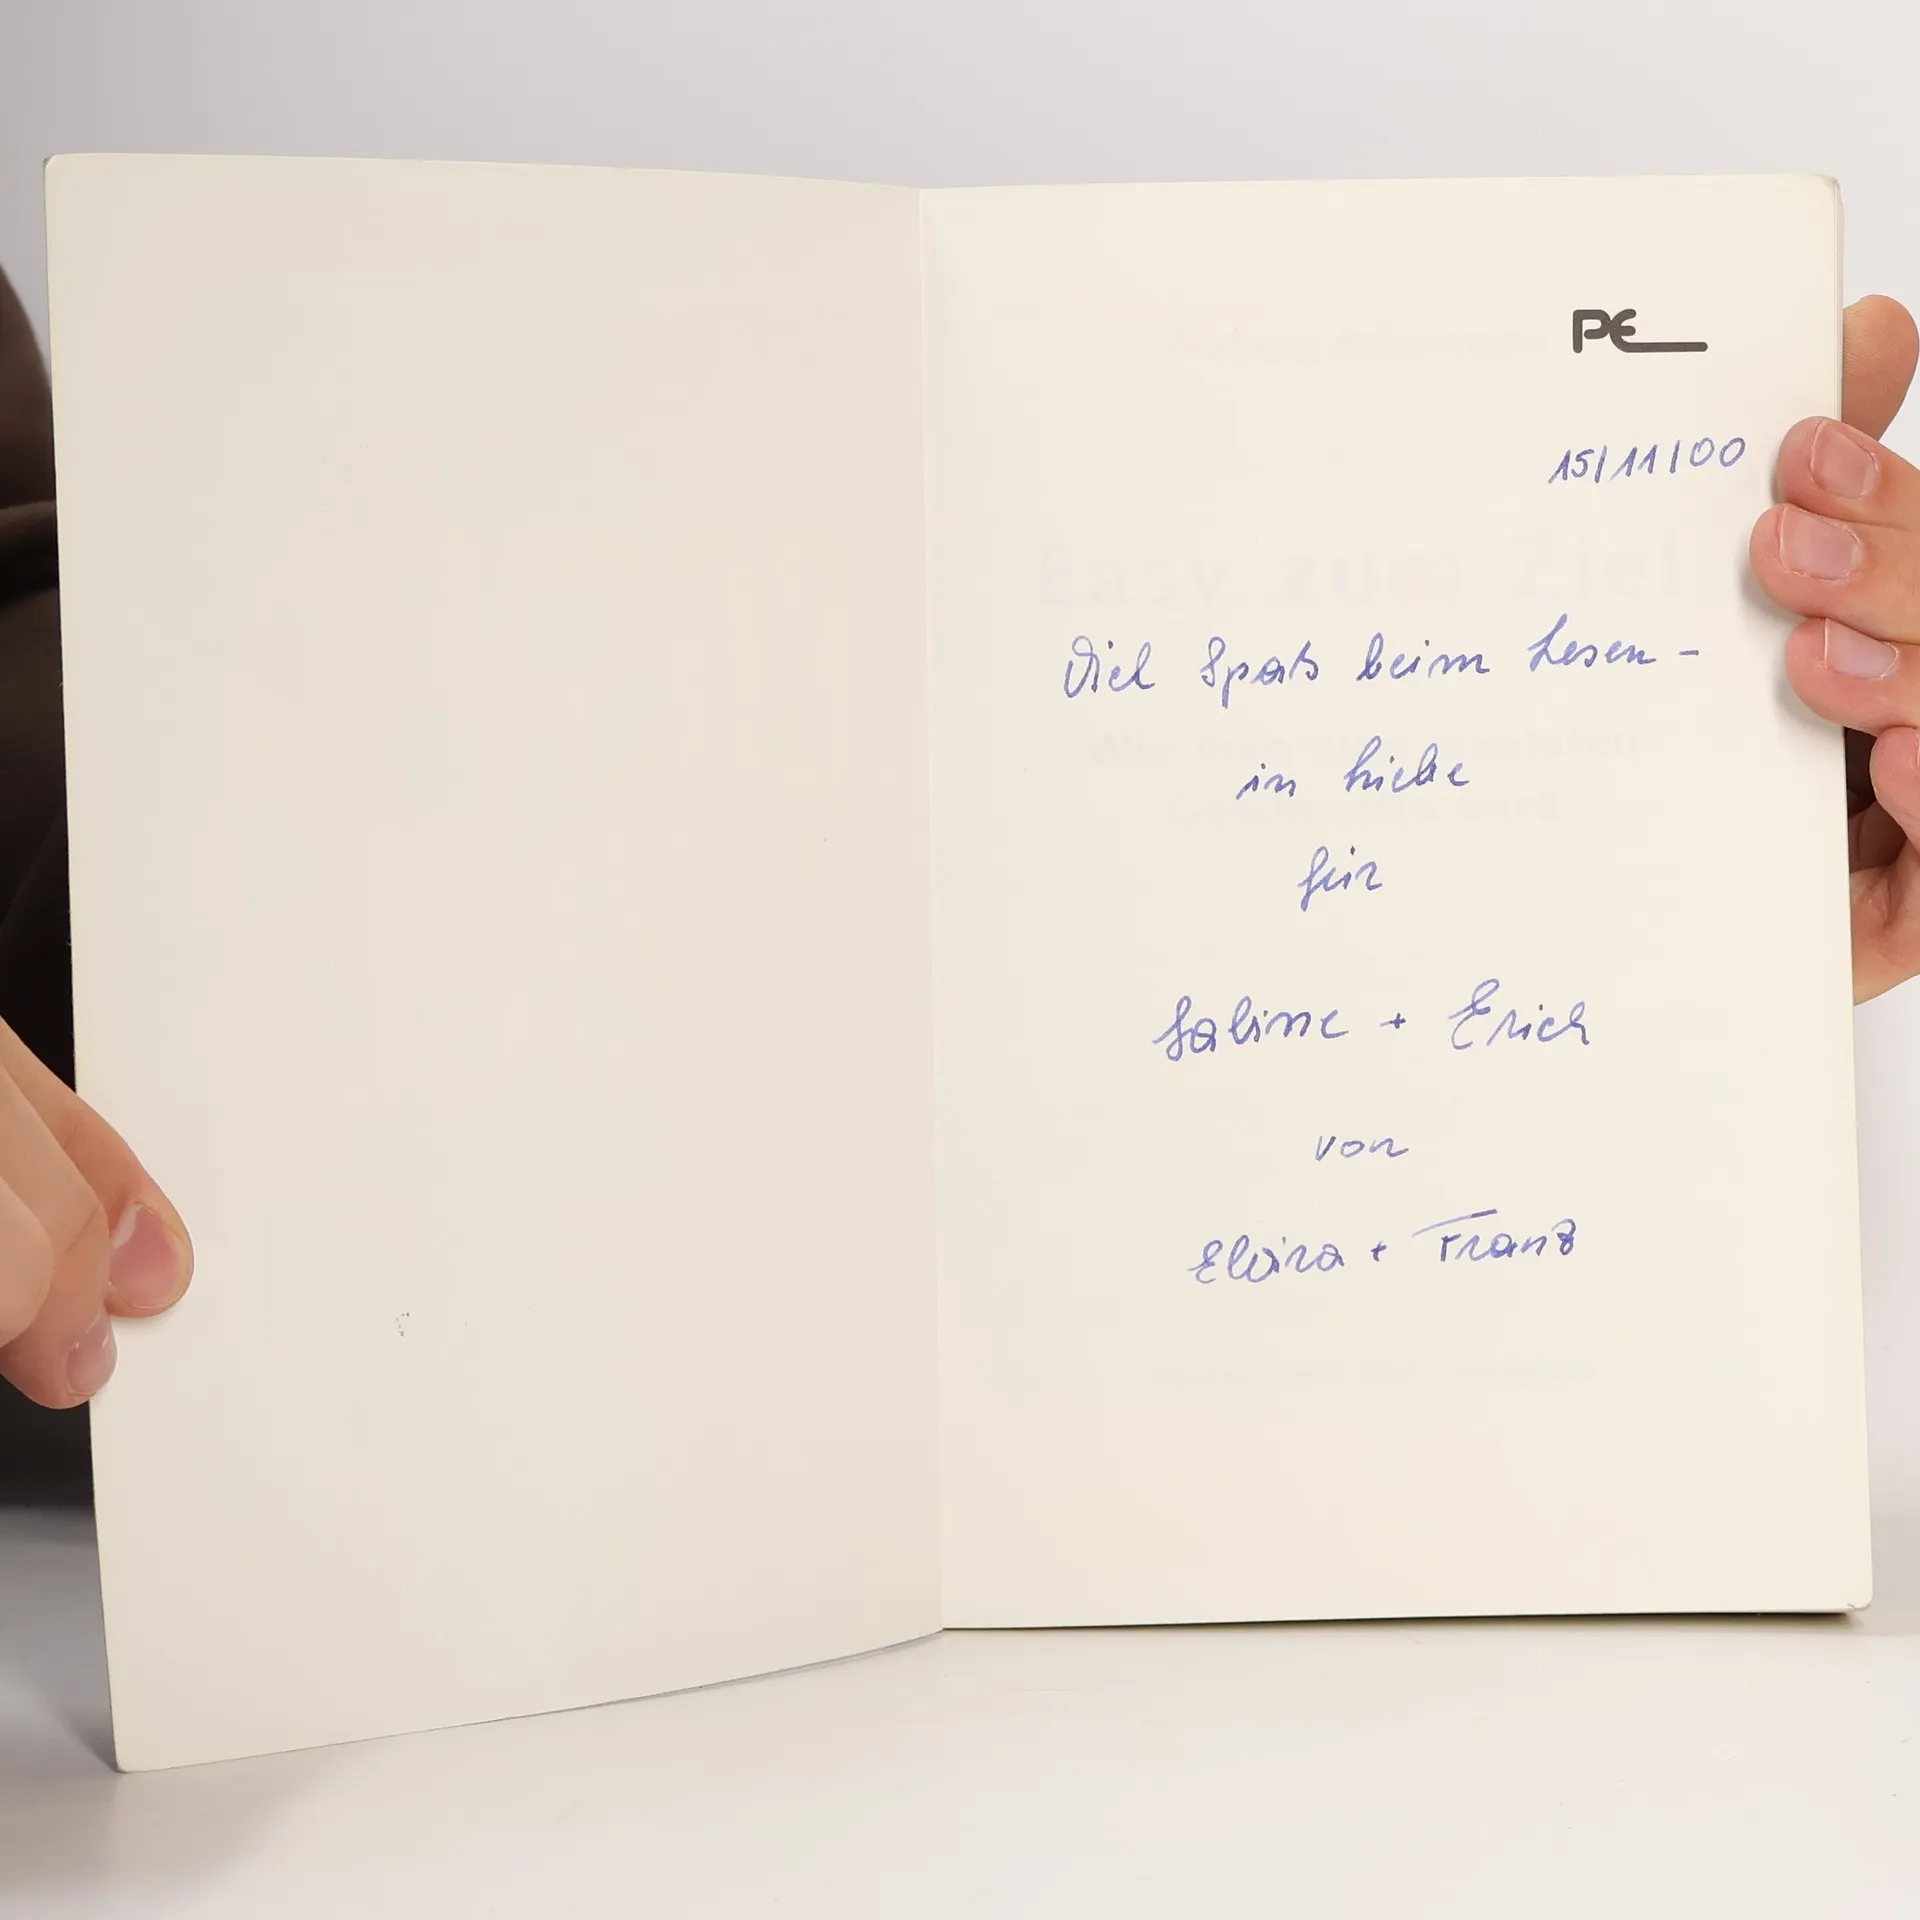 PE
15/11/00
Easy zum Ziel
Viel Spaß beim Lesen -
Wie man zum
in Liebe
wird
für
Sabine + Erich
von
Elvira + Franz